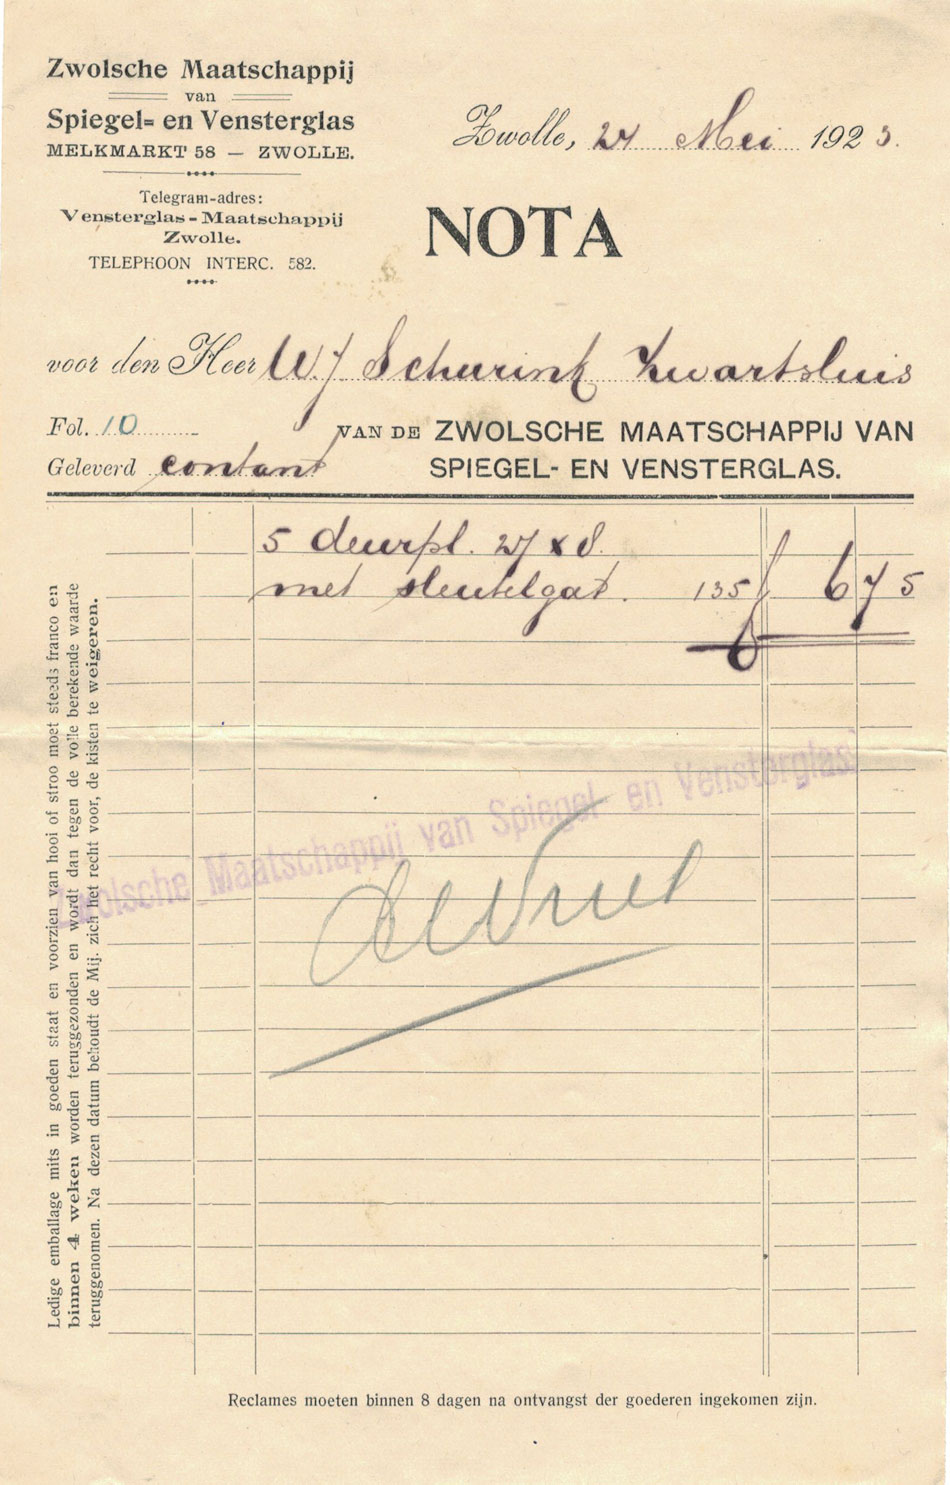 Zwolsche Maatschappij
van
Spiegel= en Vensterglas
MELKMARKT 58 — ZWOLLE.
Telegram-adres:
Vensterglas-Maatschappij
Zwolle.
TELEPHOON INTERC. 582.
Zwolle, 24 Mei 1923.
NOTA
voor den Heer W.J. Schurink Zwartsluis
Fol. 10
VAN DE ZWOLSCHE MAATSCHAPPIJ VAN
Geleverd contant
SPIEGEL- EN VENSTERGLAS.
5 deurpl. 27 x 8.
met sleutelgat. 135 f 6 75
Zwolsche Maatschappij van Spiegel en Vensterglas
Ledige emballage mits in goeden staat en voorzien van hooi of stroo moet steeds franco en
binnen 4 weken worden teruggezonden en wordt dan tegen de volle berekende waarde
teruggenomen. Na dezen datum behoudt de Mij. zich het recht voor, de kisten te weigeren.
Reclames moeten binnen 8 dagen na ontvangst der goederen ingekomen zijn.